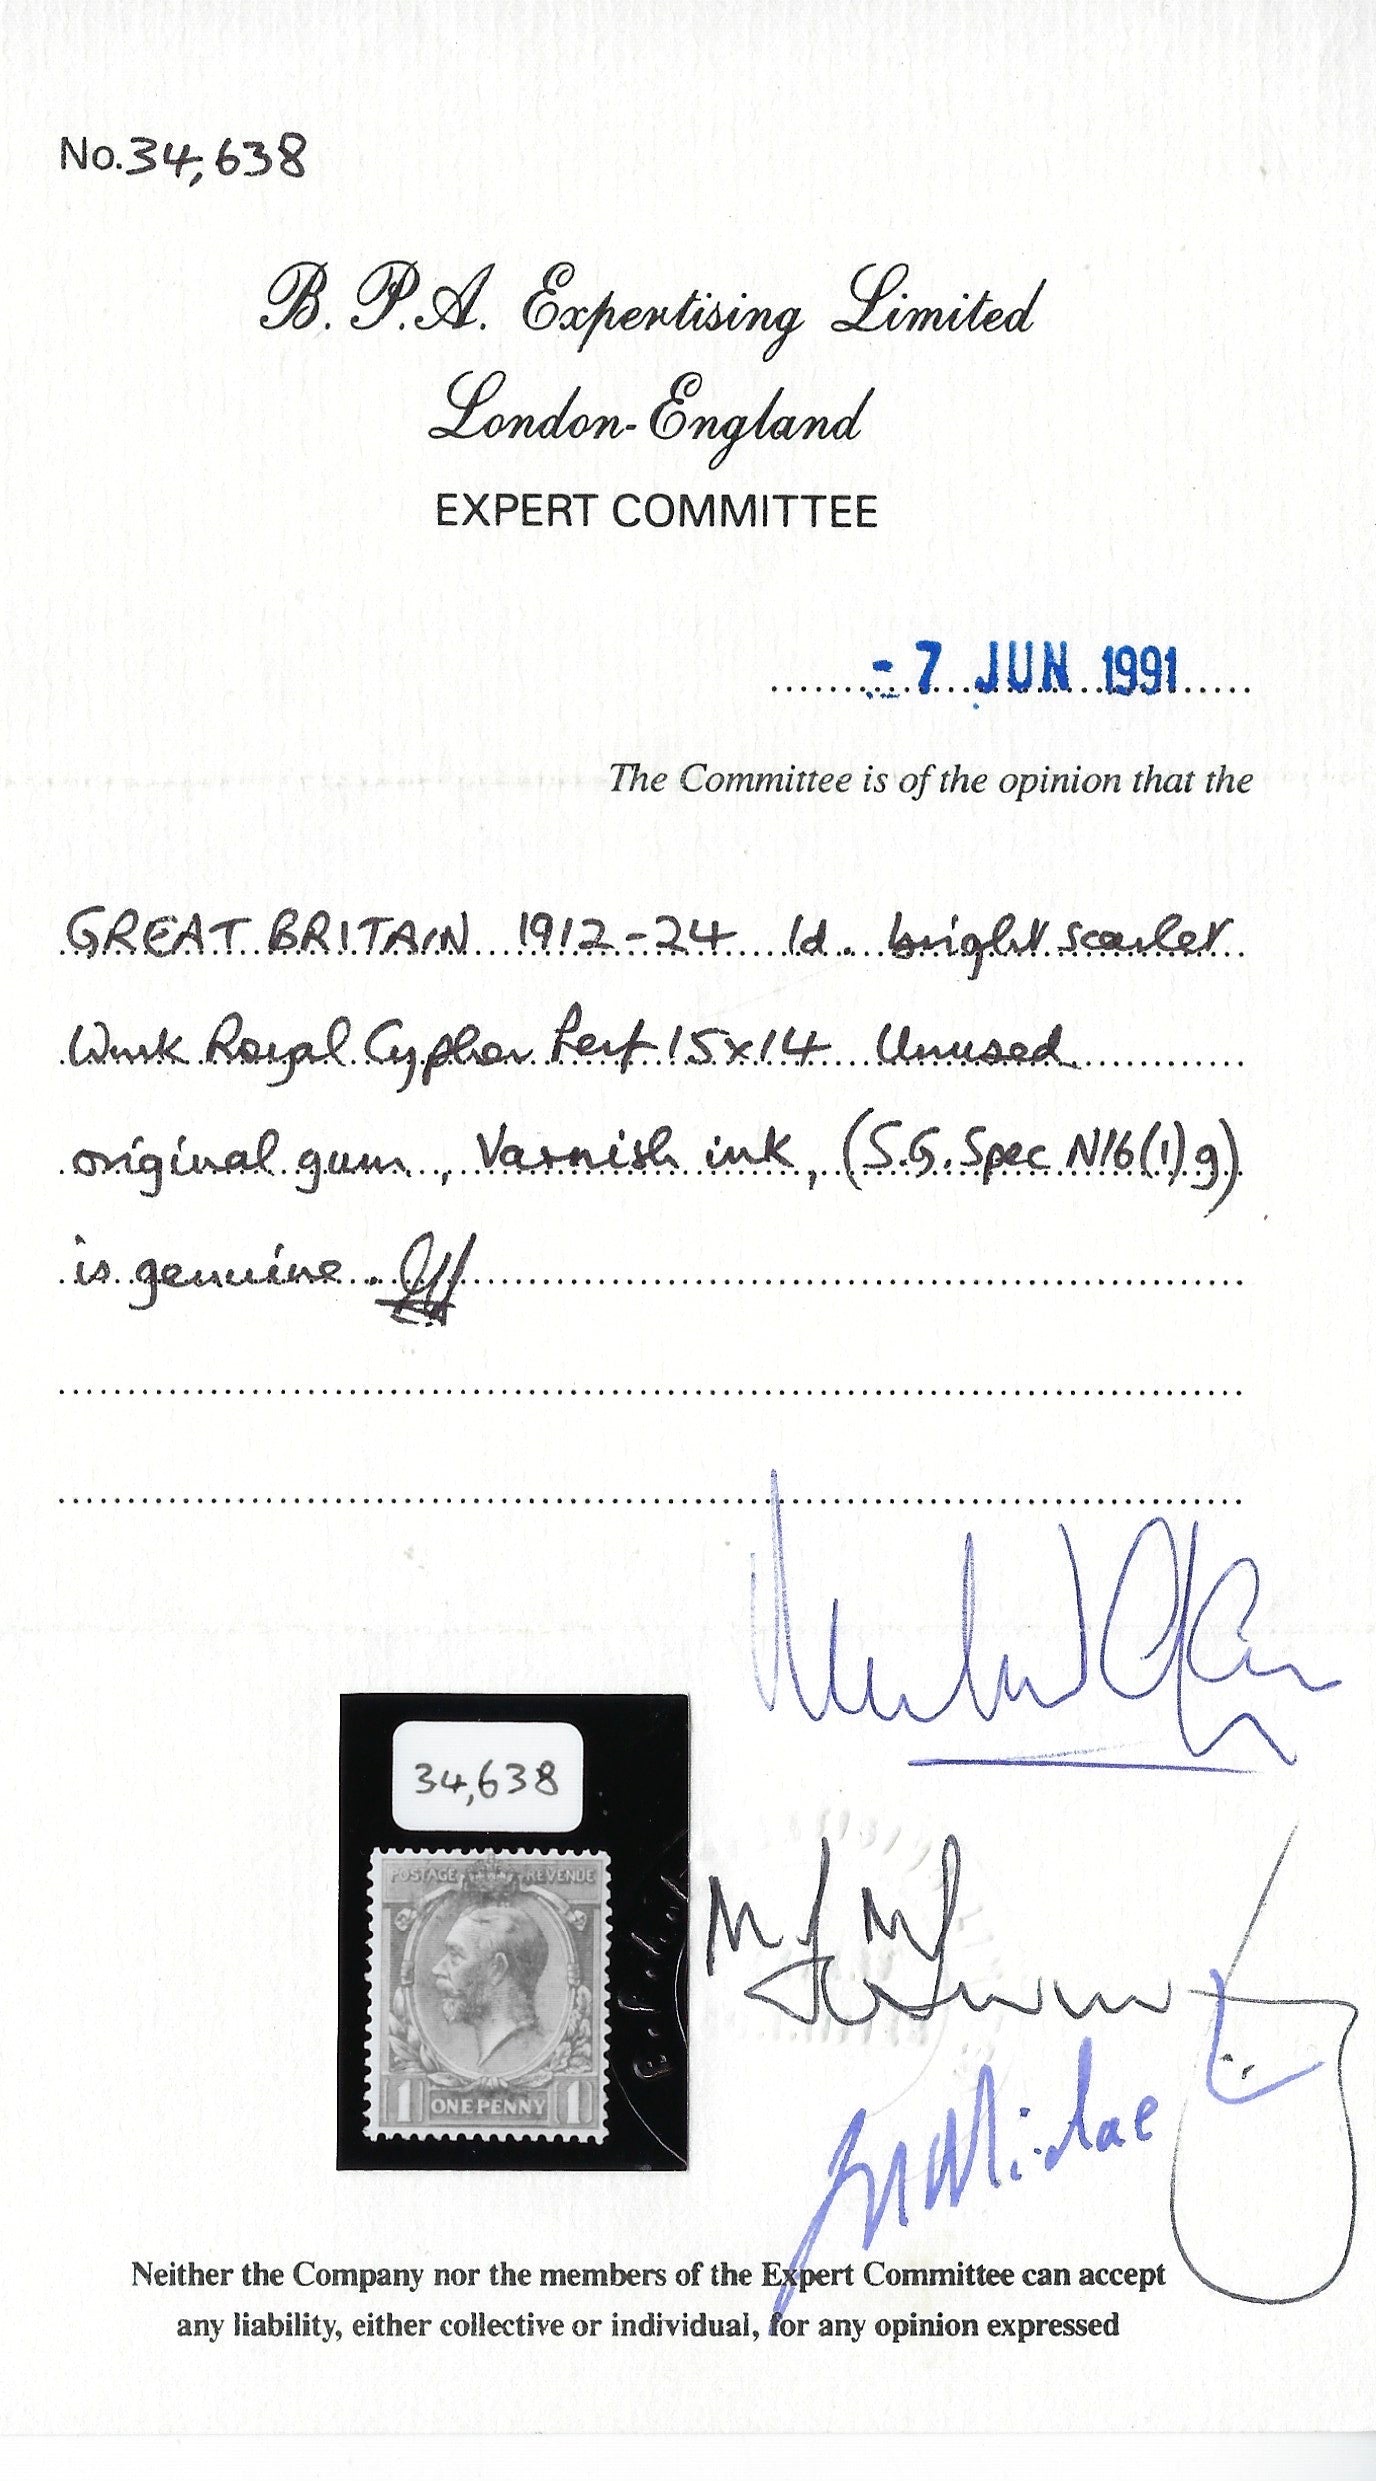 No. 34,638
B. P. A. Expertising Limited
London-England
EXPERT COMMITTEE
- 7 JUN 1991
The Committee is of the opinion that the
GREAT BRITAIN 1912-24 1d. bright scarlet
Wmk Royal Cypher Perf 15x14 Unused
original gum, Varnish ink, (S.G. Spec N16(1)g)
is genuine.
34,638
POSTAGE REVENUE
1 ONE PENNY 1
B.P.A.
Neither the Company nor the members of the Expert Committee can accept
any liability, either collective or individual, for any opinion expressed